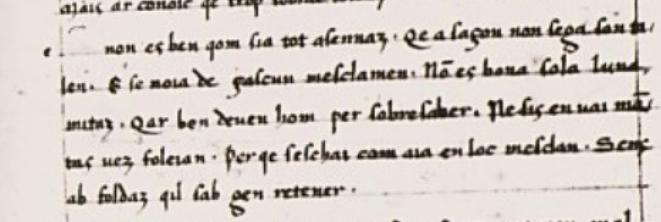 aiaiç ar conoiç qe trop
e non eç ben qom sia tot asennaz. Qe a sagon non sega son ta/
len. E se noia de gascun mesclamen. Nō eç bona sola luna/
mitaz. Qar ben deuen hom per sobresaber. Nesiç en uai mā/
taç uez foleian. Per qe seschai com aia en loc mesclan. Senç
ab foldaz qil sab gen retener.